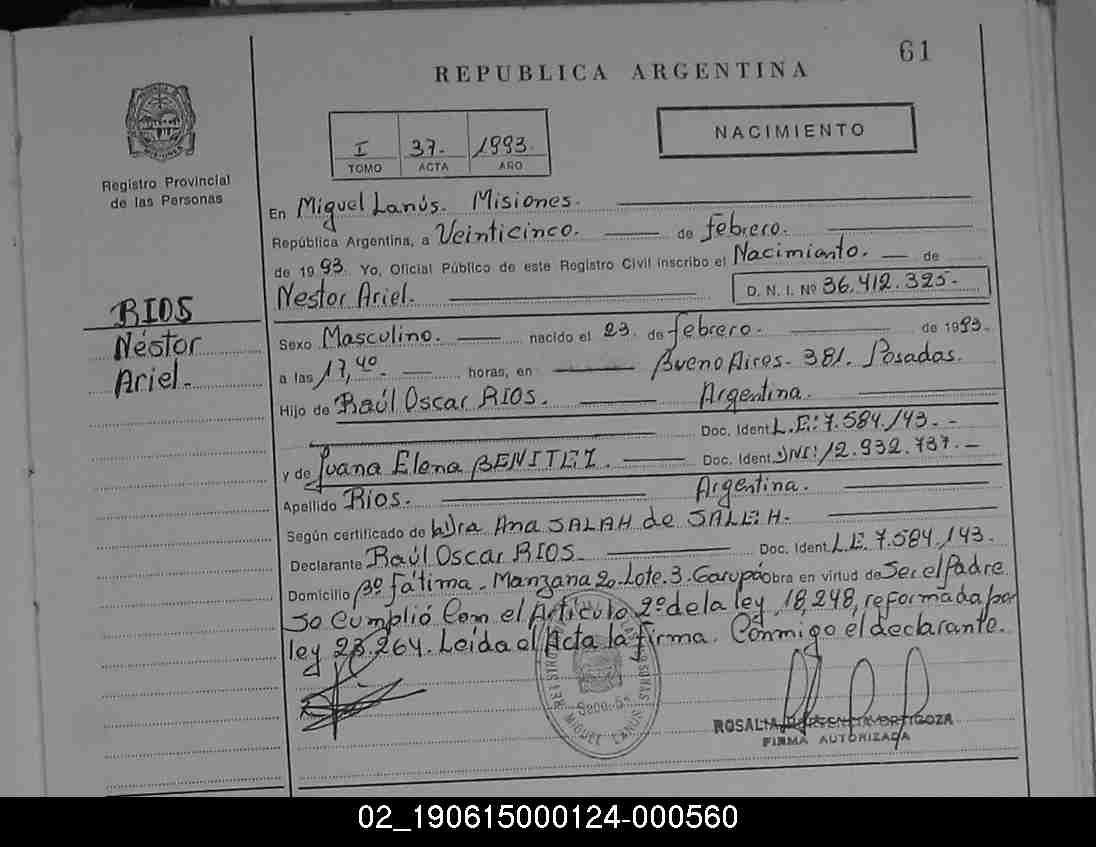 61
REPUBLICA ARGENTINA
I 37. 1993.
TOMO ACTA AÑO
NACIMIENTO
Registro Provincial
de las Personas
En Miguel Lanús. Misiones.
República Argentina, a Veinticinco. de febrero.
de 1993. Yo, Oficial Público de este Registro Civil inscribo el Nacimiento. de
Nestor Ariel. D. N. I. Nº 36.412.325.-
RIOS
Néstor
Ariel.
Sexo Masculino. nacido el 23. de febrero. de 1993.
a las 17,40 horas, en Bueno Aires. 381. Posadas.
Hijo de Raúl Oscar RIOS. Argentina.
Doc. Ident. L.E: 7.584.143.-
y de Juana Elena BENITEZ. Doc. Ident. DNI: 12.932.737.-
Apellido Ríos. Argentina.
Según certificado de Dra Ana SALAH de SALEH.
Declarante Raúl Oscar RIOS. Doc. Ident. L.E. 7.584.143.
Domicilio Bº Fátima. Manzana 20. Lote. 3. Garupá obra en virtud de Ser el Padre
Se Cumplió Con el Artículo 2º de la ley 18,248, reformada por
ley 23.264. Leída el Acta la firma. Conmigo el declarante.
MIGUEL LANUS
ROSALIA ORTIGOZA
FIRMA AUTORIZADA
02_190615000124-000560